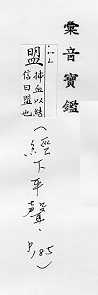 彙音寶鑑
盟 挿血以結
信曰盟也
(經下平聲, P.185)